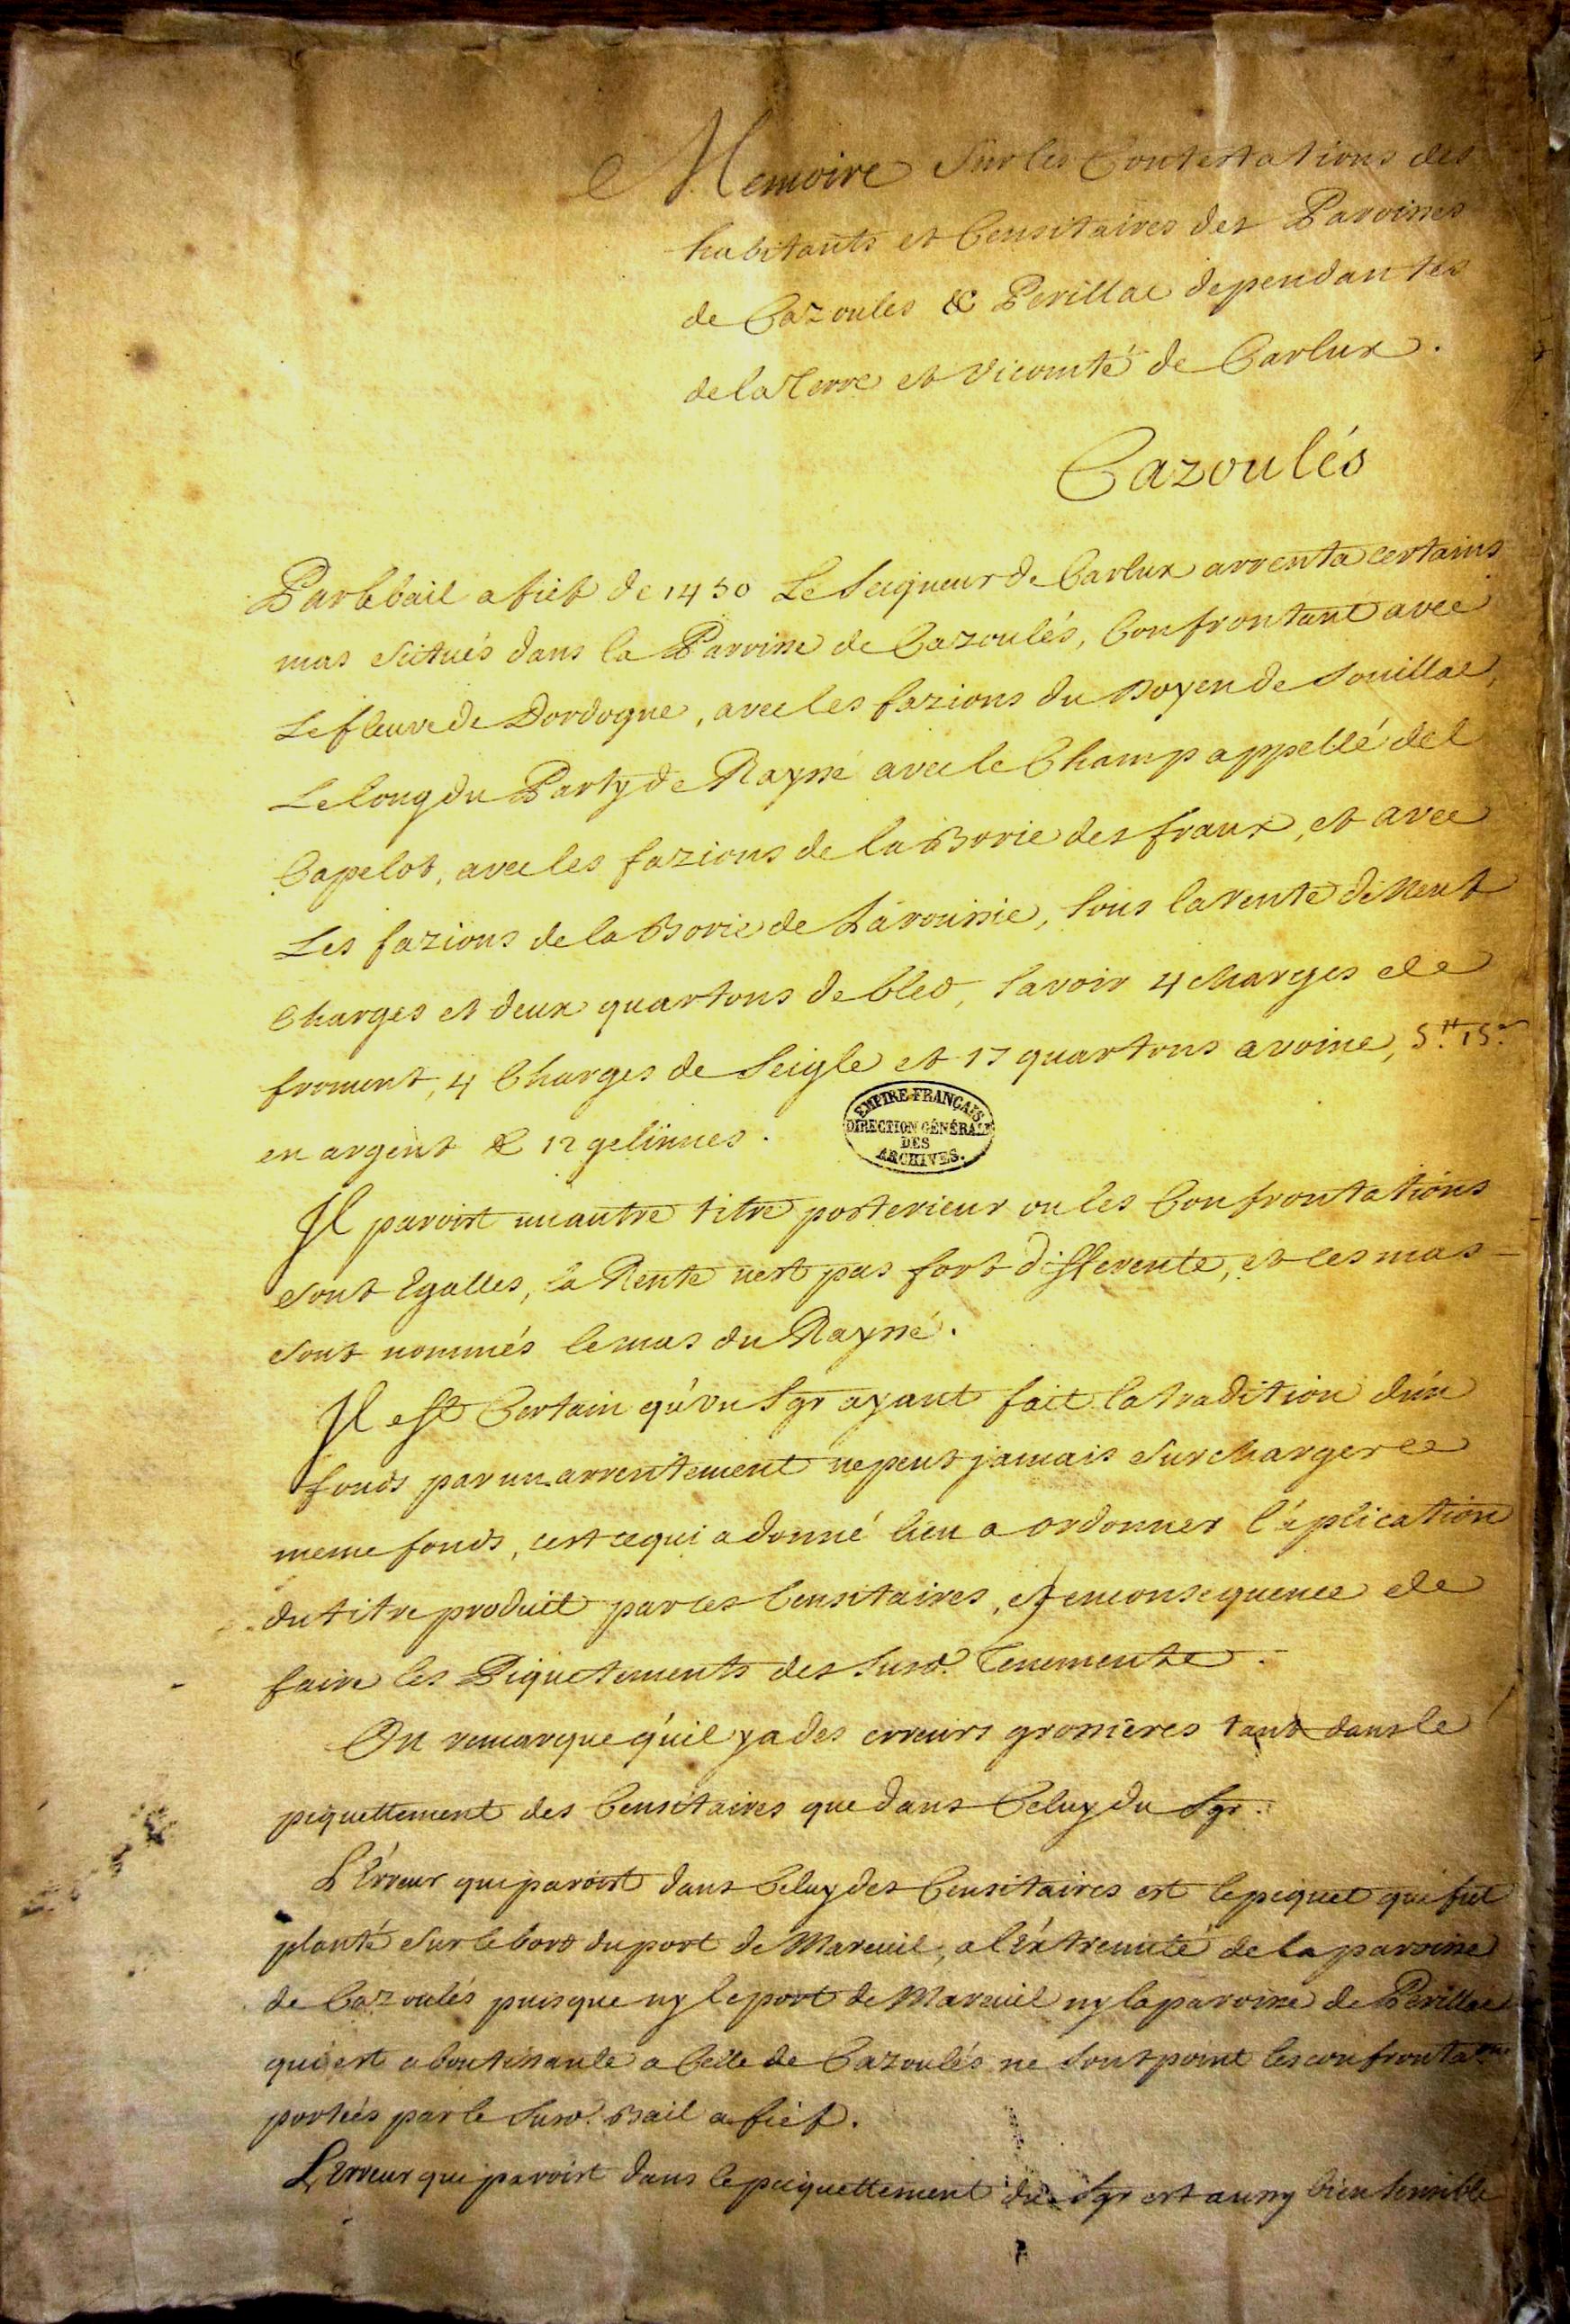 Memoire Sur les Contestations des
habitants et Censitaires des Paroisses
de Cazoules & Perillac dependantes
de la Terre et Vicomté de Carlux.
Cazoulés
Par le bail a fief de 1450 Le Seigneur de Carlux arrenta certains
mas scitués dans la Paroisse de Cazoulés, Confrontant avec
Le fleuve de Dordogne, avec les fazions du Doyen de Souillac,
Le long du Party de Raysse avec le Champ appellé del
Capelot, avec les fazions de la Borie des fraux, et avec
Les fazions de la Borie de Laroussie, Sous la rente de Neuf
Charges et deux quartons de bled, Savoir 4 charges de
froment, 4 Charges de Seigle et 17 quartons avoine, 5.tt 15.s
en argent & 12 gelinnes.
EMPIRE FRANÇAIS
DIRECTION GÉNÉRALE
DES
ARCHIVES.
Il paroist un autre titre posterieur ou les Confrontations
sont Egalles, la Rente nest pas fort differente, et les mas
sont nommés le mas du Raysse.
Il est Certain qu'un Sgr ayant fait la tradition d'un
fonds par un arrentement ne peut jamais surcharger ce
meme fonds, cest ce qui a donné lieu a ordonner l'aplication
du titre produit par les Censitaires, et en consequence de
faire les Piquetements des Susd. Tenements.
On remarque qu'il y a des erreurs grossieres tant dans le
piquettement des Censitaires que dans Celuy du Sgr.
L'Erreur qui paroist dans Celuy des Censitaires est le piquet qui fut
planté sur le bord du port de Mareuil, a l'Extremité de la paroisse
de Cazoulés puisque ny le port de Mareuil ny la paroisse de Perillac
qui est aboutissante a Celle de Cazoulés ne Sont point les confronta.ons
portées par le Susd. Bail a fief.
L'Erreur qui paroist dans le piquettement du Sgr est aussy bien Sensible